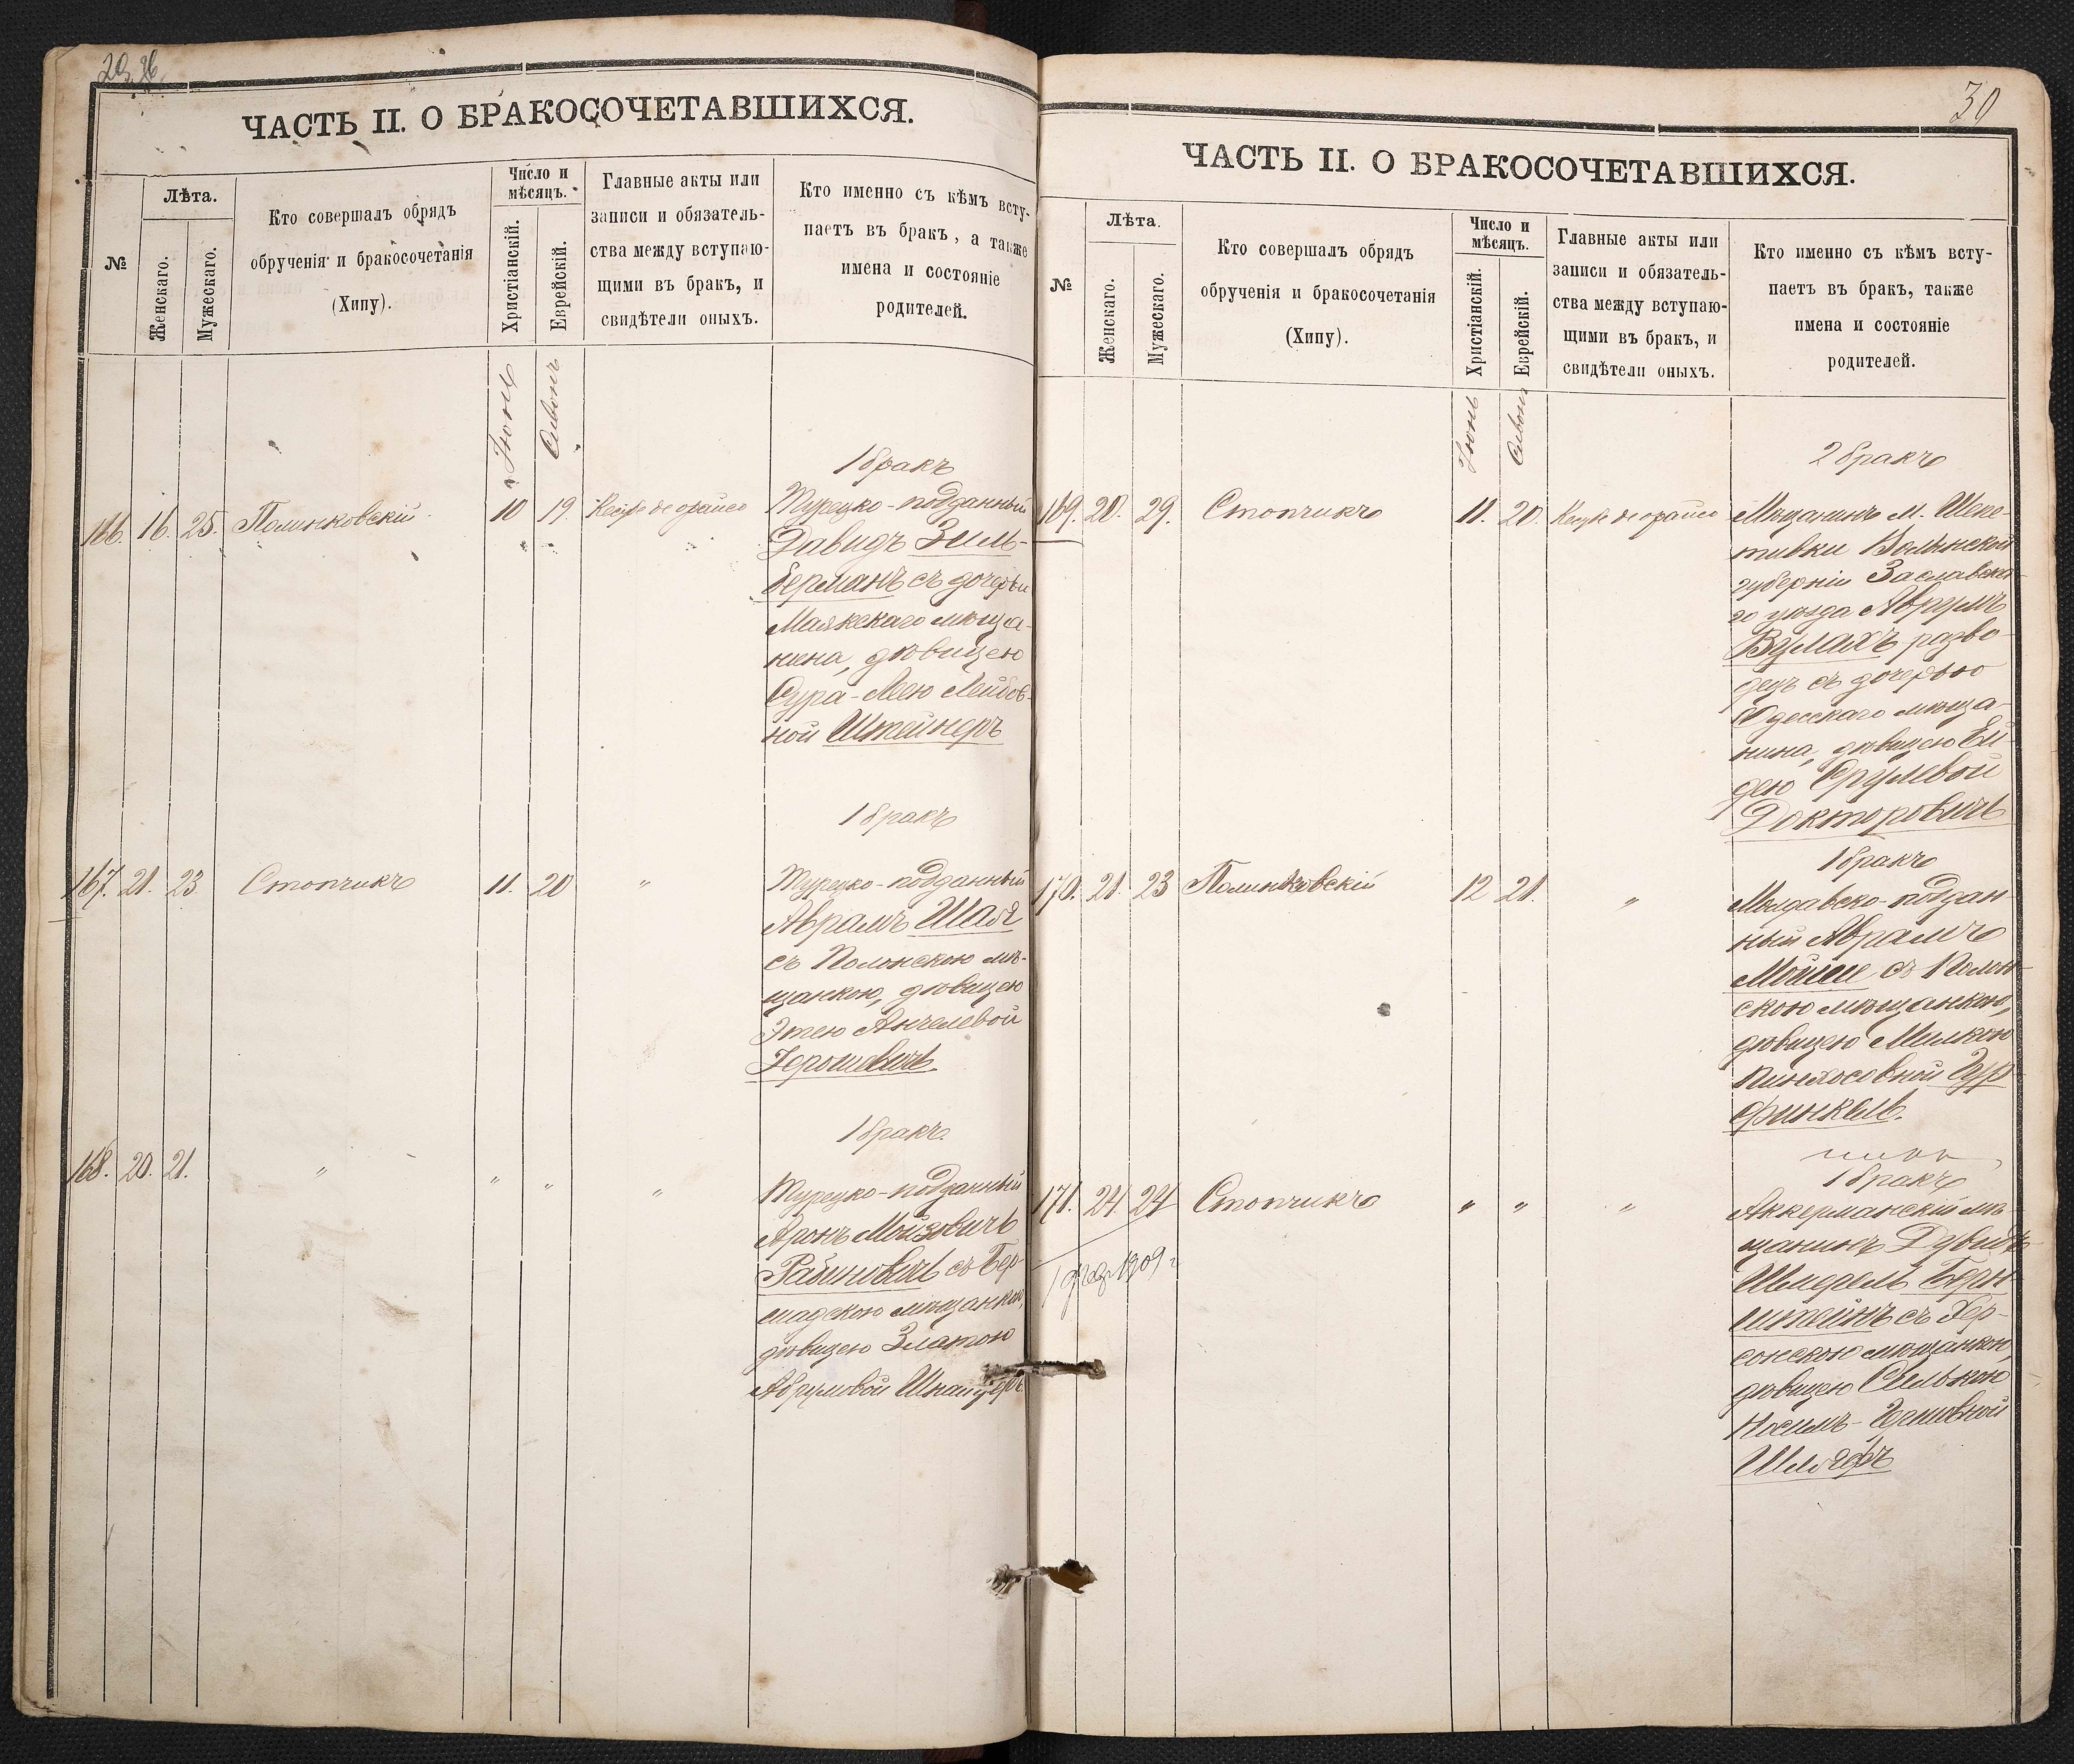 ЧАСТЬ II. О БРАКОСОЧЕТАВШИХСЯ.
№
Лѣта.
Женскаго.
Мужескаго.
Кто совершалъ обрядъ
обрученія и бракосочетанія
(Хипу).
Число и
мѣсяцъ.
Христіанскій.
Еврейскій.
Главные акты или
записи и обязатель-
ства между вступаю-
щими въ бракъ, и
свидѣтели оныхъ.
Кто именно съ кѣмъ всту-
паетъ въ бракъ, а также
имена и состояніе
родителей.
Іюнь
Сивонъ
1 бракъ
166. 16. 25. Полинковскій 10 19. Турецко-подданный
Давидъ Зиль-
берманъ съ дочерью
Маякскаго мѣща-
нина, дѣвицею
Сура-Лею Лейбов-
ной Штейнеръ
1 бракъ
167. 21. 23 Стопчикъ 11. 20 " Турецко-подданный
Аврамъ Шая
съ Полонскою мѣ-
щанкою, дѣвицею
Этею Анчелевой
Герошевичъ.
1 бракъ.
168. 20. 21. " " " " Турецко-подданный
Аронъ Мойзовичъ
Рабиновичъ съ Бер-
шадскою мѣщанкою,
дѣвицею Златою
Абрумовой Шнайдеръ.
30
ЧАСТЬ II. О БРАКОСОЧЕТАВШИХСЯ.
№
Лѣта.
Женскаго.
Мужескаго.
Кто совершалъ обрядъ
обрученія и бракосочетанія
(Хипу).
Число и
мѣсяцъ.
Христіанскій.
Еврейскій.
Главные акты или
записи и обязатель-
ства между вступаю-
щими въ бракъ, и
свидѣтели оныхъ.
Кто именно съ кѣмъ всту-
паетъ въ бракъ, также
имена и состояніе
родителей.
Іюнь
Сивонъ
2 бракъ
169. 20. 29. Стопчикъ 11. 20. Мѣщанинъ м. Шепе-
тивки Волынской
губерніи Заславска-
го уѣзда Аврумъ
Вумахъ разво-
децъ съ дочерью
Одесскаго мѣща-
нина, дѣвицею Ей-
дею Срулевой
Докторовичъ
1 бракъ
170. 21. 23 Полинковскій 12 21. " Молдавско-поддан-
ный Абрамъ
Мойше съ Полон-
скою мѣщанкою,
дѣвицею Милкою
Пинхосовной Гур-
финкель.
1 бракъ
171. 24. 24 Стопчикъ " " " Аккерманскій мѣ-
щанинъ Дувидъ
Шмерель Берн-
штейнъ съ Хер-
сонскою мѣщанкою,
дѣвицею
1909 г